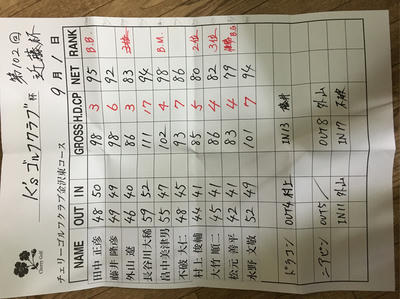 第102回
K'sゴルフクラブ杯 近藤杯
9月1日
チェリーゴルフクラブ金沢東コース
NAME OUT IN GROSS H.D.CP NET RANK
田中 正彦 48 50 98 3 95 B.B.
藤井 隆彦 49 49 98 6 92
外山 遼 46 40 86 3 83
長谷川大稀 59 52 111 17 94
畠中美津男 55 47 102 4 98 B.M.
不破 大仁 48 45 93 7 86
村上 俊輔 44 41 85 5 80 2位
大竹 順二 45 41 86 4 82 3位
松元 善平 42 41 83 4 79 B.G
水野 文敬 52 49 101 7 94
ドラコン OUT4 村上 IN13 藤井
ニアピン OUT5 OUT8 外山
IN11 外山 IN17 不破